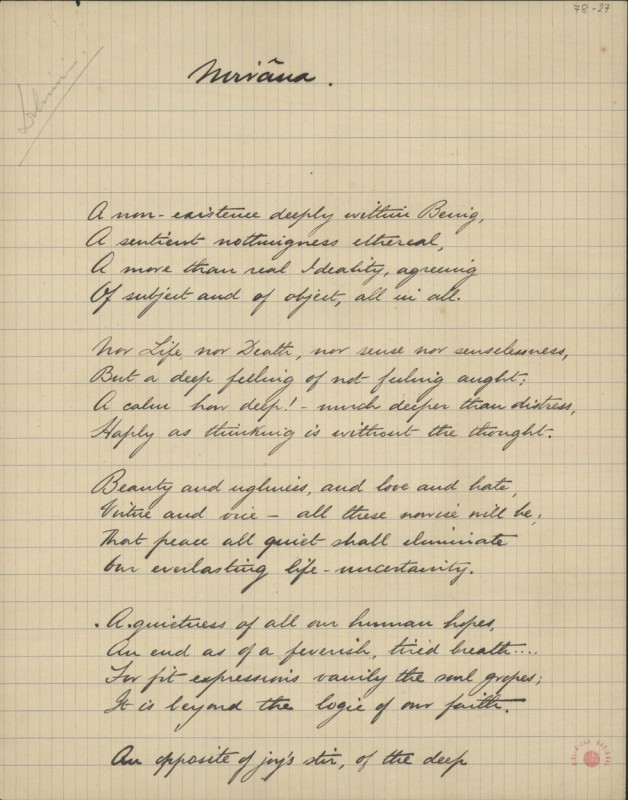 78-27
Nirvâna.
A non-existence deeply within Being,
A sentient nothingness ethereal,
A more than real Ideality, agreeing
Of subject and of object, all in all.
Nor Life, nor Death, nor sense nor senselessness,
But a deep feeling of not feeling aught;
A calm how deep! - much deeper than distress,
Haply as thinking is without the thought.
Beauty and ugliness, and love and hate,
Virtue and vice - all these nowise will be;
That peace all quiet shall eliminate
Our everlasting life-uncertainty.
A quietness of all our human hopes,
An end as of a feverish, tired breath....
For fit expressions vainly the soul gropes;
It is beyond the logic of our faith.
An opposite of joy's stir, of the deep